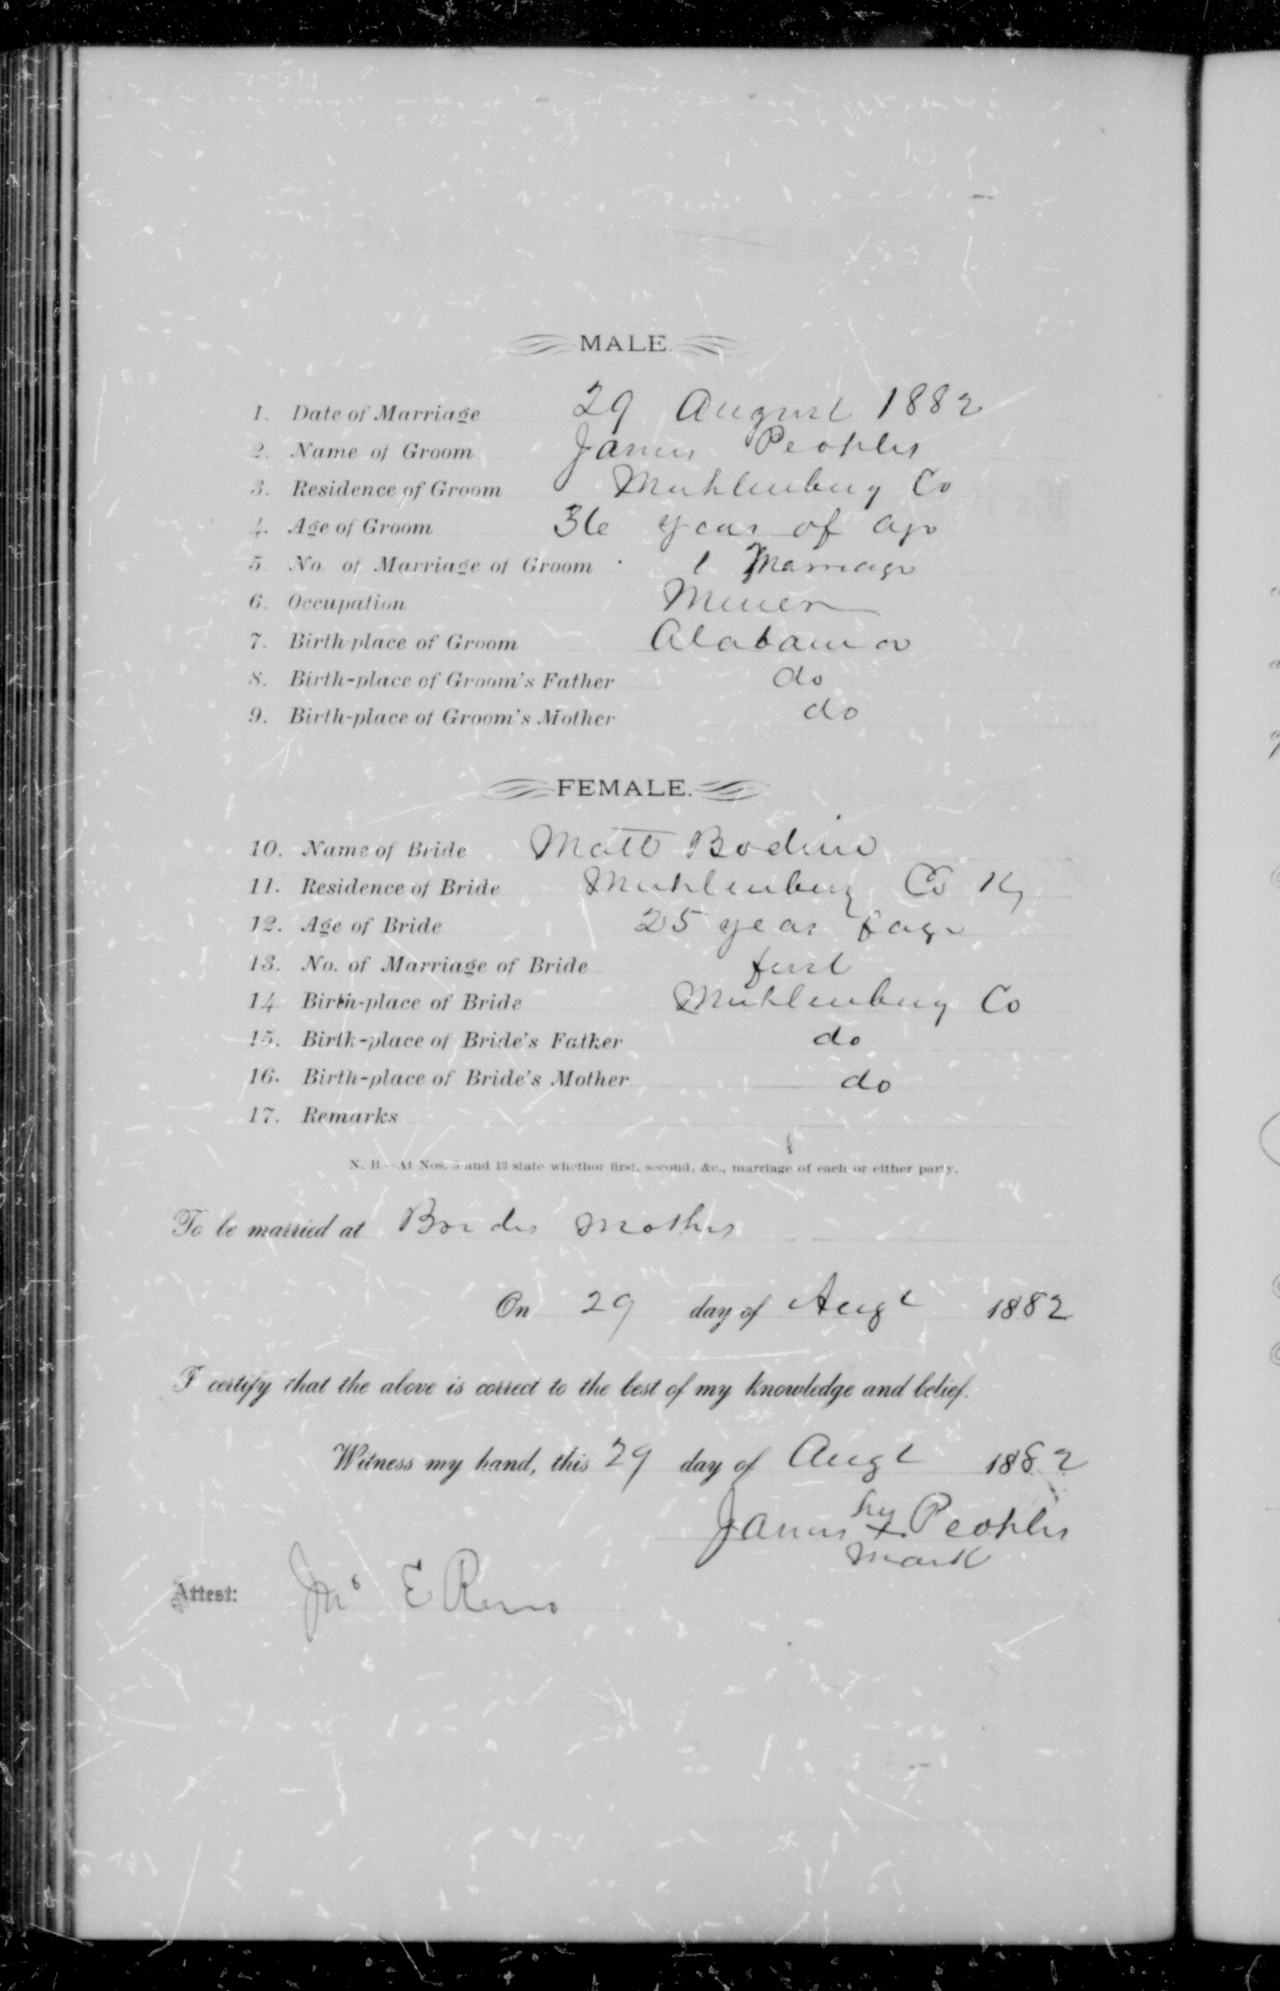 MALE.
1. Date of Marriage 29 August 1882
2. Name of Groom James Peoples
3. Residence of Groom Muhlenburg Co
4. Age of Groom 36 years of age
5. No. of Marriage of Groom 1 Marriage
6. Occupation Miner
7. Birth-place of Groom Alabama
8. Birth-place of Groom's Father do
9. Birth-place of Groom's Mother do
FEMALE.
10. Name of Bride Matt Bodine
11. Residence of Bride Muhlenburg Co Ky
12. Age of Bride 25 year of age
13. No. of Marriage of Bride first
14. Birth-place of Bride Muhlenburg Co
15. Birth-place of Bride's Father do
16. Birth-place of Bride's Mother do
17. Remarks
N. B—At Nos. 5 and 13 state whether first, second, &c., marriage of each or either party.
To be married at Brides Mothers
On 29 day of Augt 1882
I certify that the above is correct to the best of my knowledge and belief.
Witness my hand, this 29 day of Augt 1882
his
James X Peoples
mark
Attest: Jno E Reno